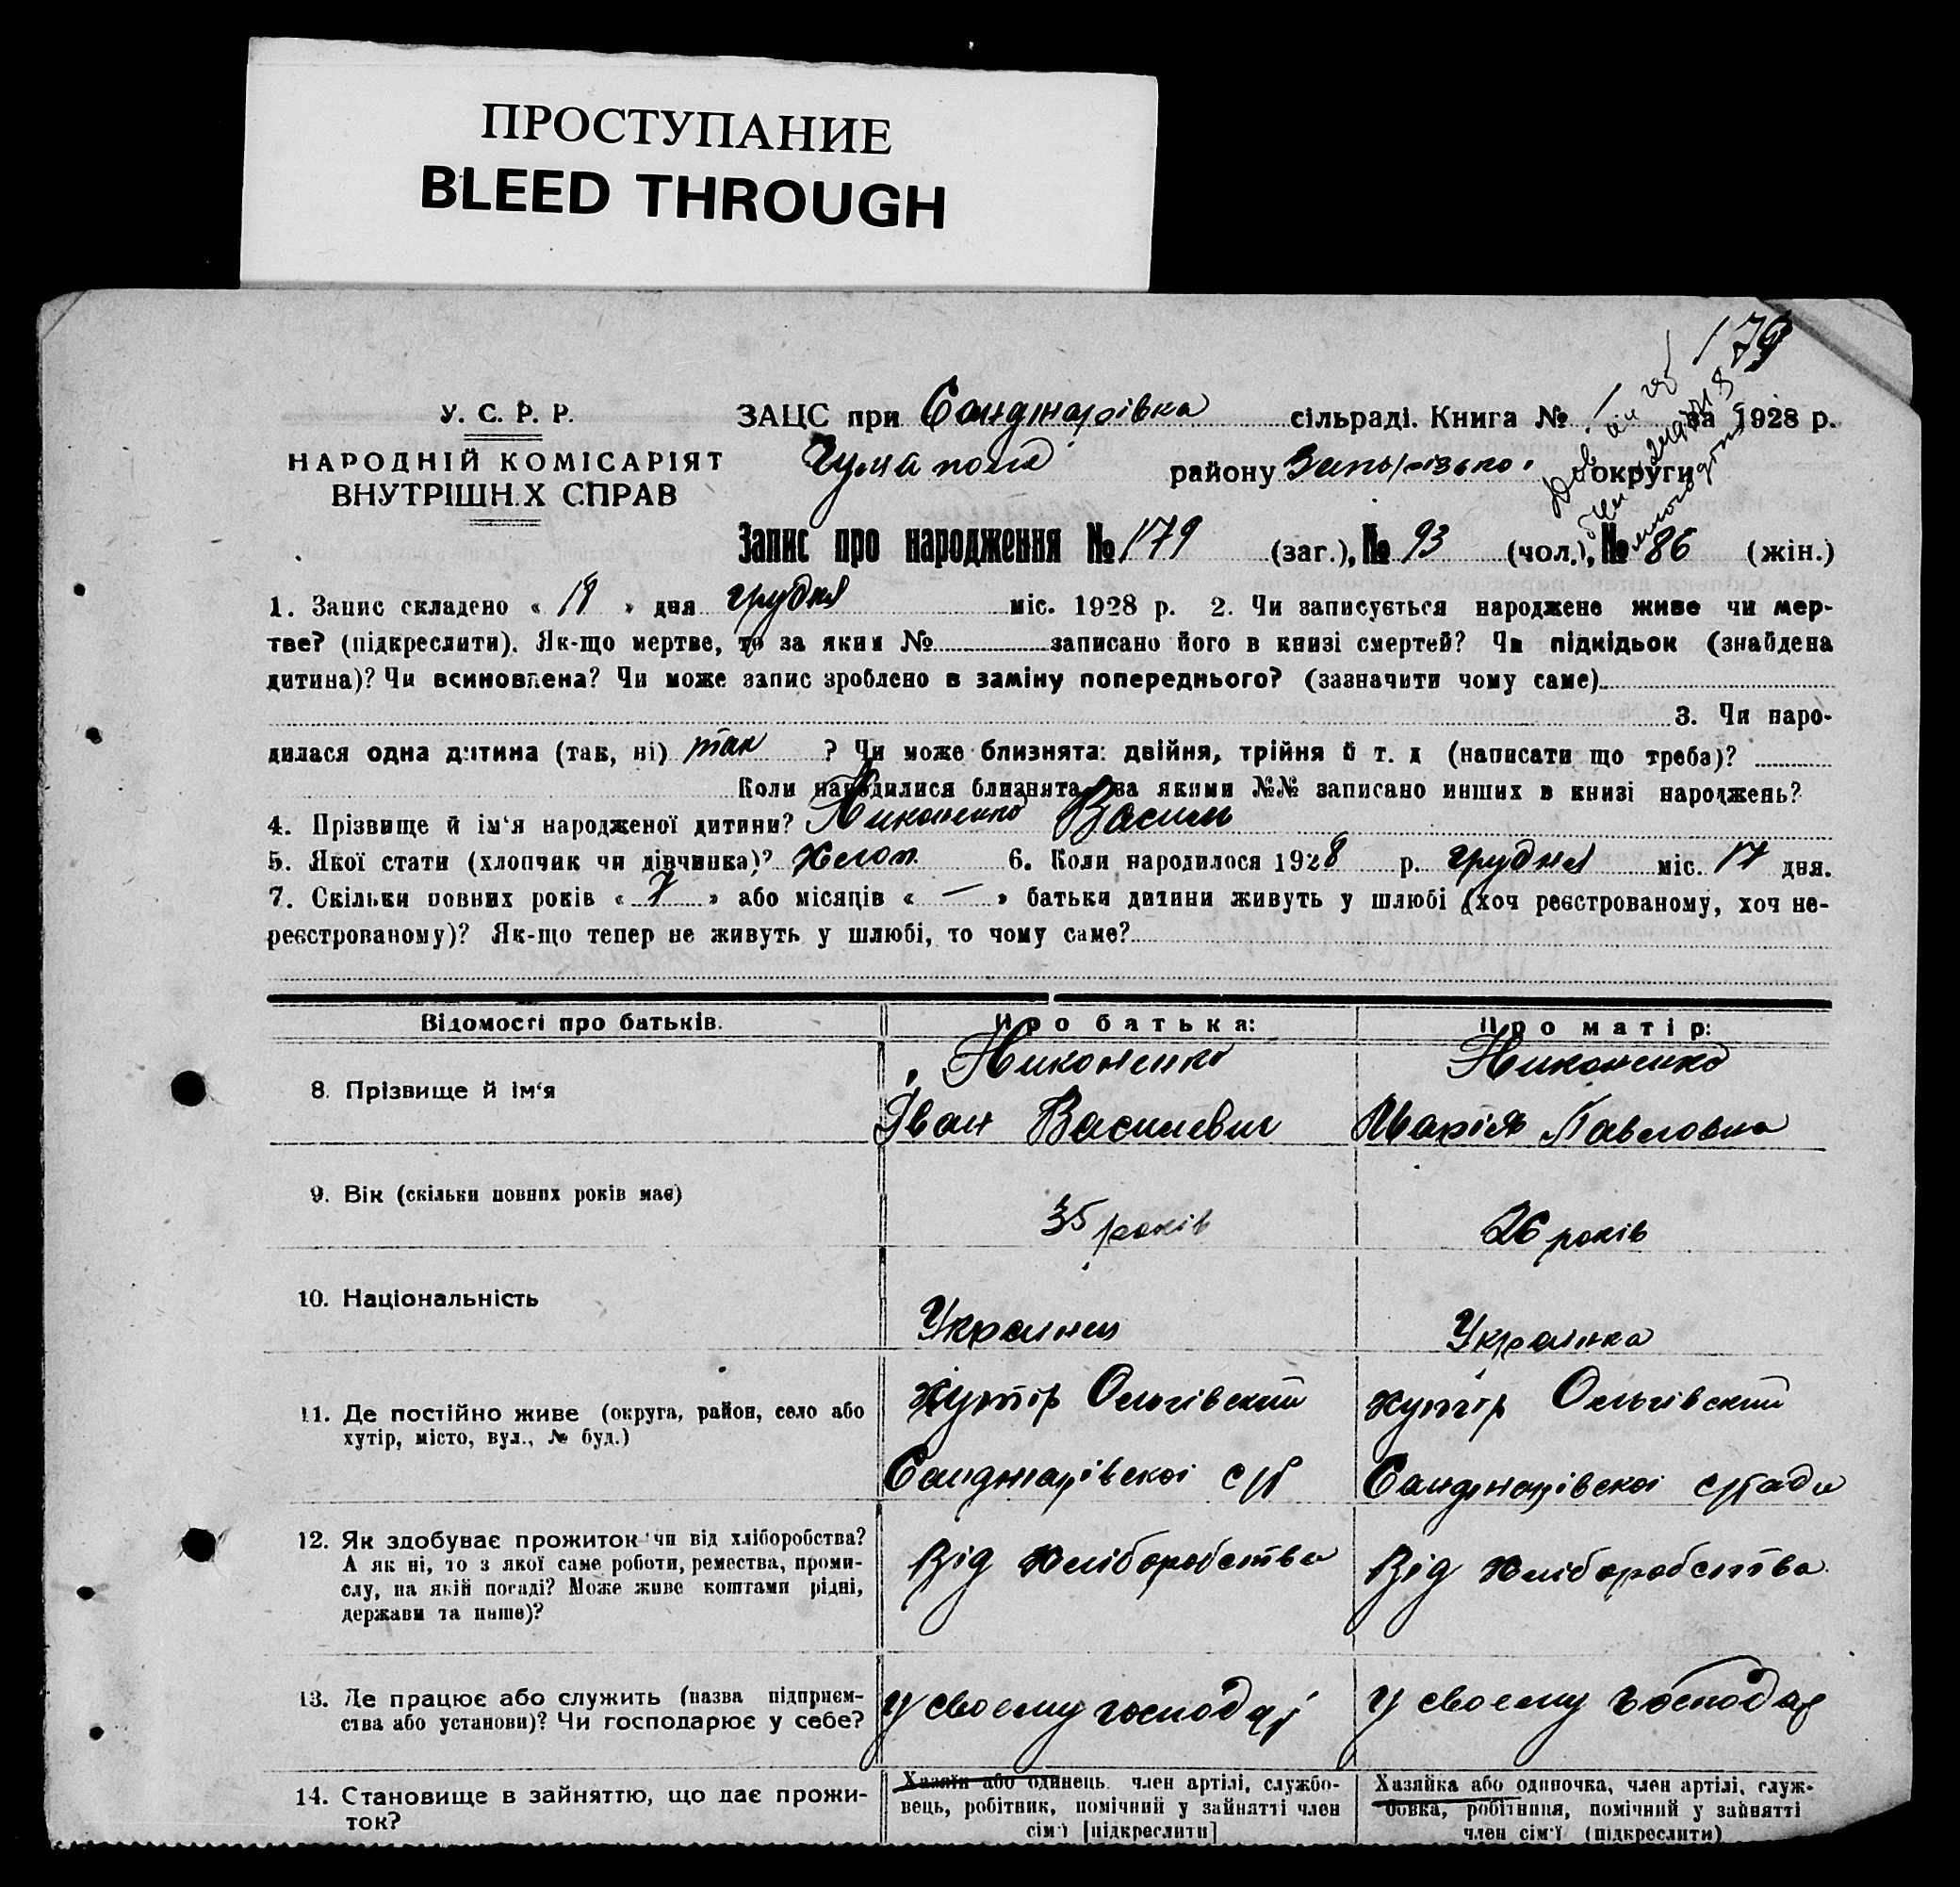 ПРОСТУПАНИЕ
BLEED THROUGH
179
У. С. Р. Р.
НАРОДНІЙ КОМІСАРІЯТ
ВНУТРІШН.Х СПРАВ
ЗАЦС при Санджарівка сільраді. Книга № за 1928 р.
Гуляй поля району Запорізької округи
Запис про народження № 179 (заг.), № 93 (чол.), № 86 (жін.)
1. Запис складено « 19 » дня грудня міс. 1928 р. 2. Чи записується народжене живе чи мер-
тве? (підкреслити). Як-що мертве, то за яким № записано його в книзі смертей? Чи підкідьок (знайдена
дитина)? Чи всиновлена? Чи може запис зроблено в заміну попереднього? (зазначити чому саме)
3. Чи наро-
дилася одна дитина (так, ні) так ? Чи може близнята: двійня, трійня й т. д (написати що треба)?
Коли народилися близнята, за якими №№ записано инших в книзі народжень?
4. Прізвище й ім'я народженої дитини? Никоненко Василь
5. Якої стати (хлопчик чи дівчинка)? хлоп. 6. Коли народилося 1928 р. грудня міс. 17 дня.
7. Скільки повних років « 7 » або місяців « — » батьки дитини живуть у шлюбі (хоч реєстрованому, хоч не-
реєстрованому)? Як-що тепер не живуть у шлюбі, то чому саме?
Відомості про батьків. Про батька: Про матір:
8. Прізвище й ім'я
Никоненко
Іван Василевич
Никоненко
Марія Павловна
9. Вік (скільки повних років має) 35 років 26 років
10. Національність Украинец Украинка
11. Де постійно живе (округа, район, село або
хутір, місто, вул., № буд.)
хутір Ольгівский
Санджарівскоі с/р
хутір Ольгівский
Санджарівскоі с/ради
12. Як здобуває прожиток чи від хліборобства?
А як ні, то з якої саме роботи, ремества, проми-
слу, на якій посаді? Може живе коштами рідні,
держави та инше)?
Від хліборобства
Від хліборобства
13. Де працює або служить (назва підприєм-
ства або установи)? Чи господарює у себе?
у своему господар
у своему господар
14. Становище в зайняттю, що дає прожи-
ток?
Хазяїн або одинець член артілі, службо-
вець, робітник, помічний у зайнятті член
сім'ї [підкреслити]
Хазяйка або одиночка, член артілі, служ-
бовка, робітниця, помічний у зайнятті
член сім'ї (підкреслити)